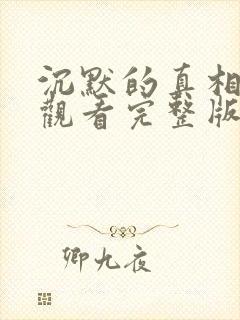 沉默的真相
觀看完整版
卿九夜